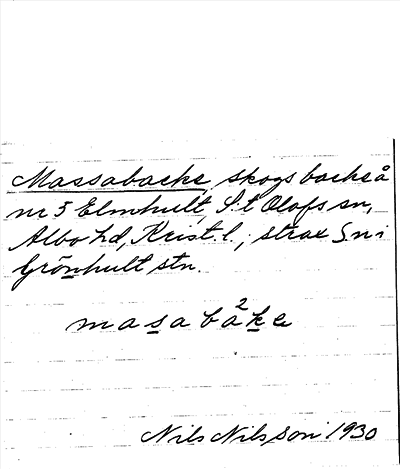 Massabacke, skogsbacke å
nr 5 Elmhult, S:t Olofs sn,
Albo hd, Krist. l., strax S n i
Grönhult stn.
masabà²ke
Nils Nilsson 1930